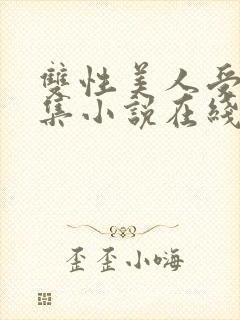 雙性美人受
集小說在綫
歪歪小嗨